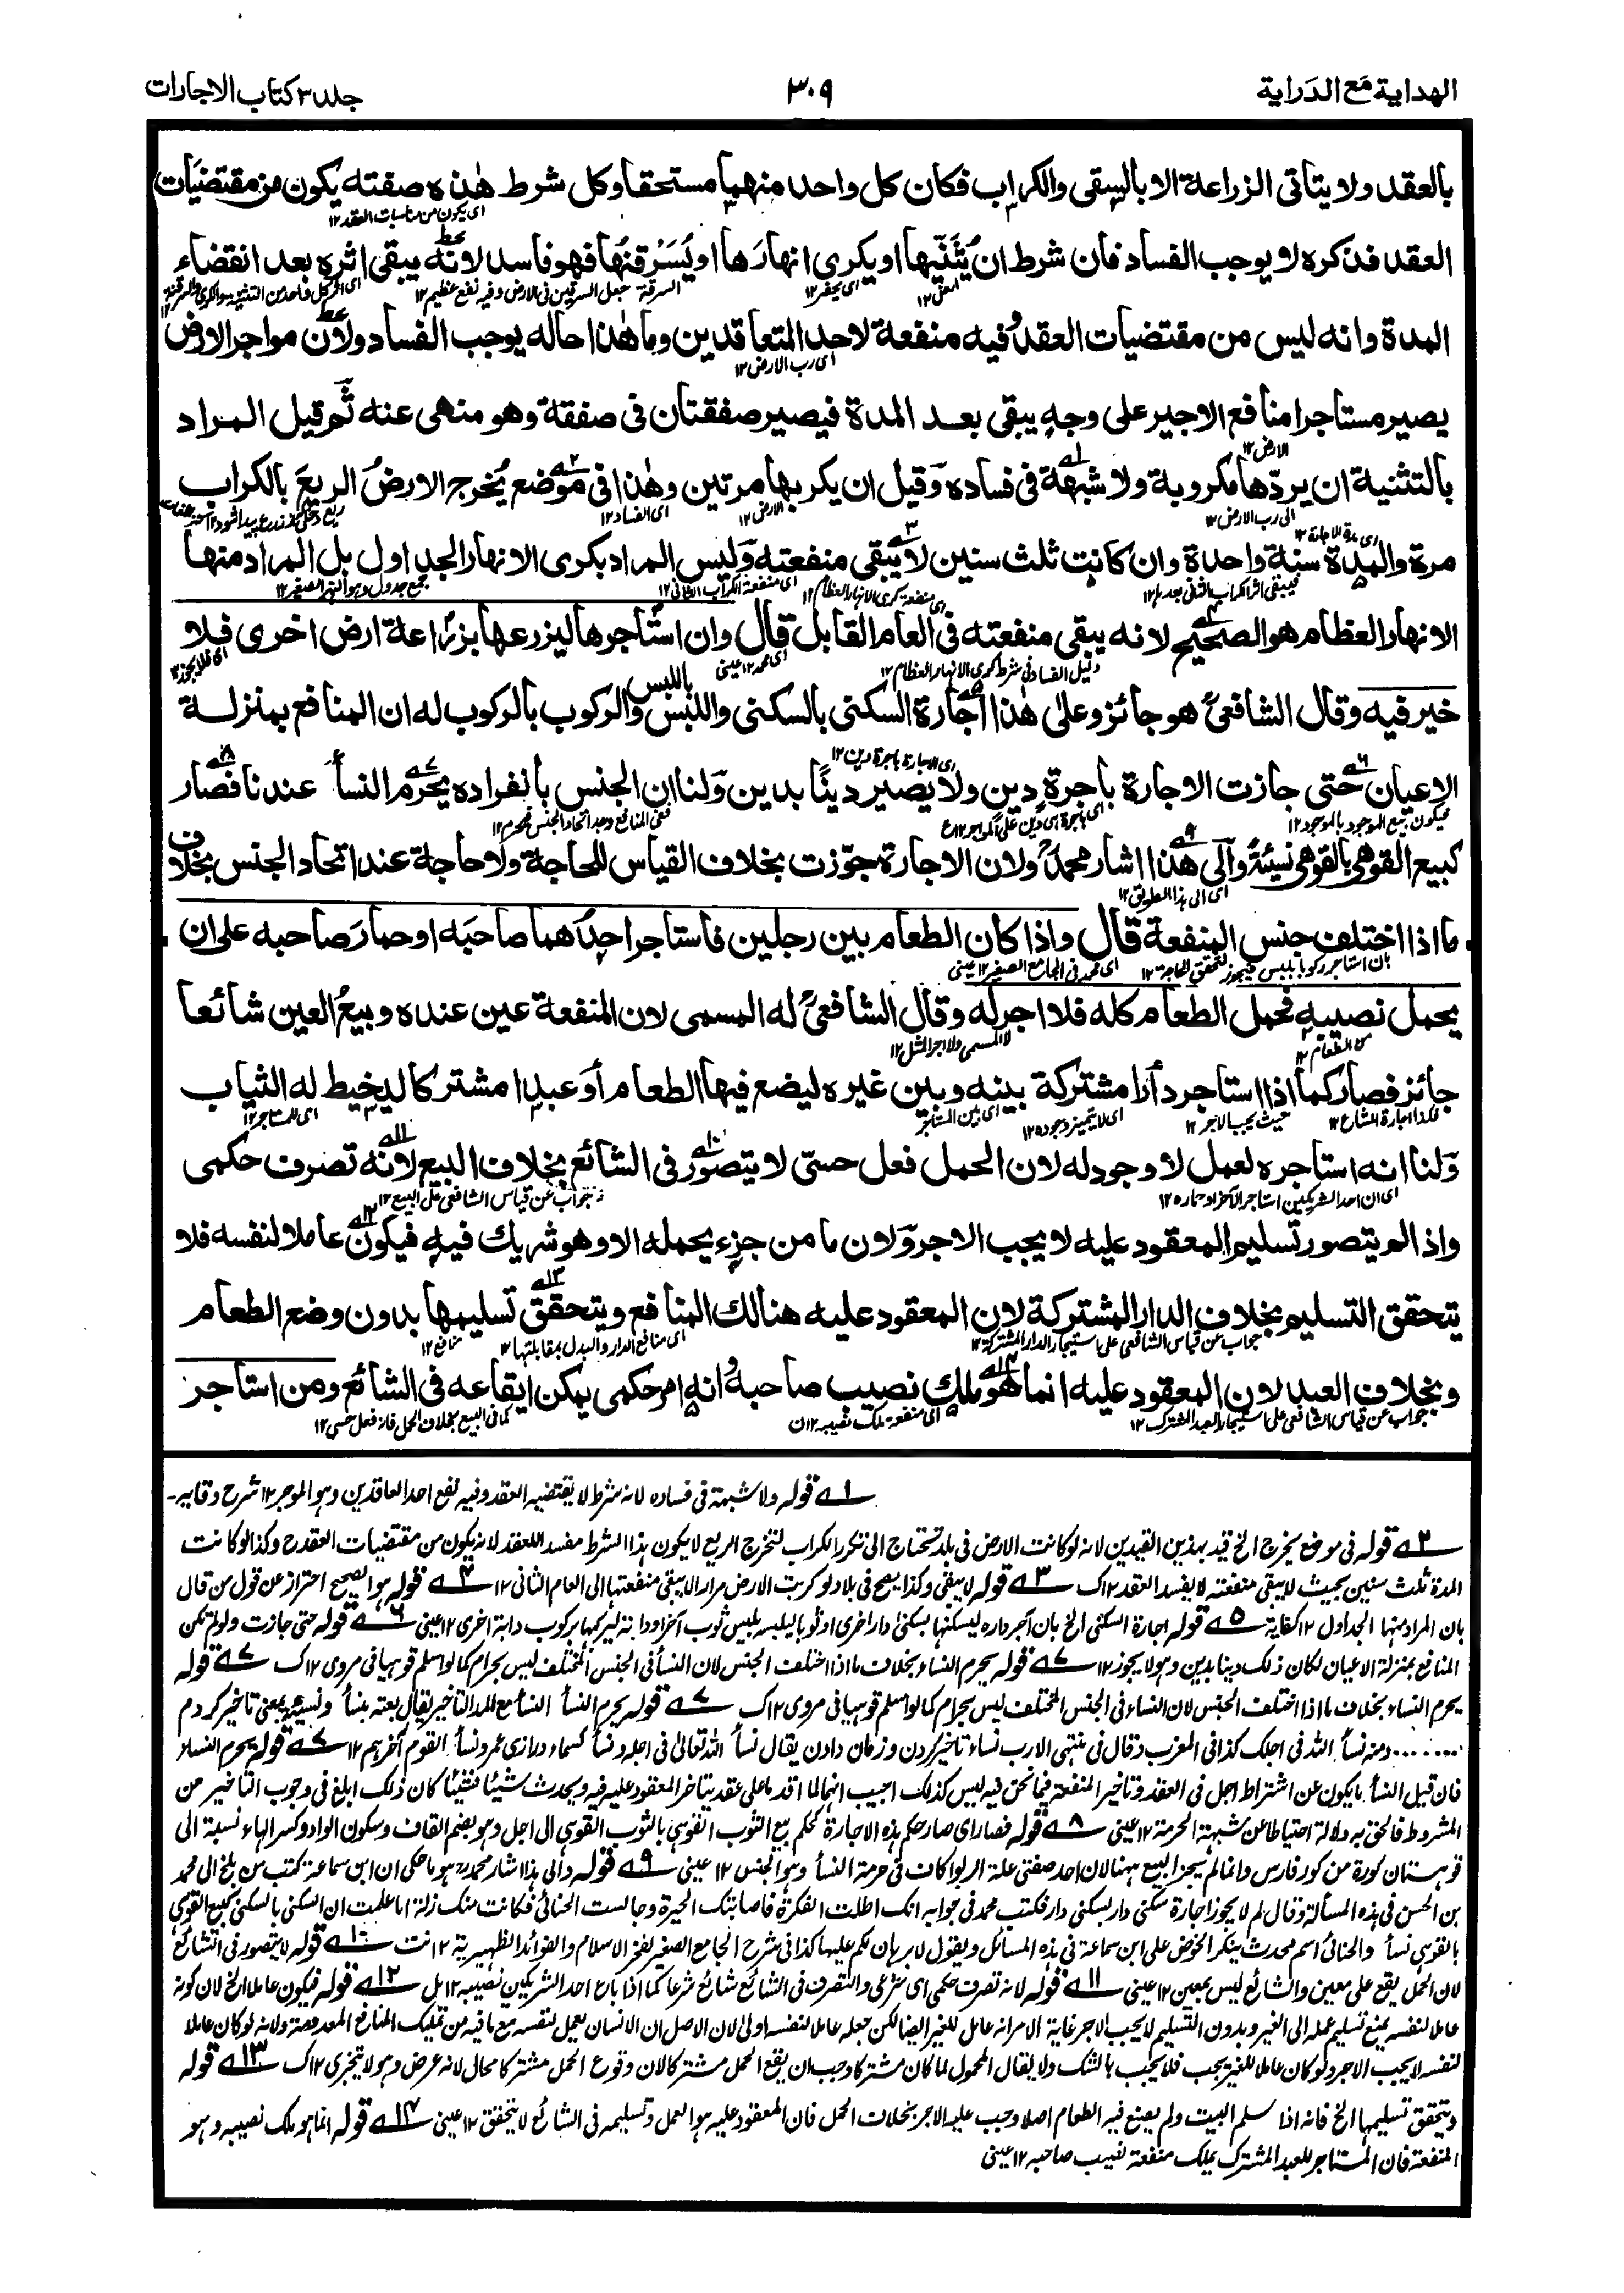 الهداية مع الدراية
٣٠٩
جلد ٣ كتاب الاجارات
بالعقد ولا يتاتى الزراعة الا بالسقى والكراب فكان كل واحد منهما مستحقا وكل شرط هذه صفته يكون من مقتضيات
اى يكون من مناسبات العقد ١٢
العقد فذكره لا يوجب الفساد فان شرط ان يُثَنّيها او يكرى انهارَها او يُسَرْقنُها فهو فاسد لانه يبقى اثره بعد انقضاء
اى يحفر ١٢
السرقنة جعل السرقين فى الارض وفيه نفع عظيم ١٢
المدة وانه ليس من مقتضيات العقد وفيه منفعة لاحد المتعاقدين وما هذا حاله يوجب الفساد ولان مواجر الارض
اى رب الارض ١٢
يصير مستاجرا منافع الاجير على وجهٍ يبقى بعد المدة فيصير صفقتان فى صفقة وهو منهى عنه ثم قيل المراد
الارض ١٢
بالتثنية ان يردّها مكروبة ولا شبهة فى فساده وقيل ان يكربها مرتين وهذا فى موضع يُخرج الارضُ الريعَ بالكراب
الى رب الارض ١٢
الارض ١٢
اى الفساد ١٢
اى مدة الاجارة ١٢
مرة والمدة سنة واحدة وان كانت ثلث سنين لا يبقى منفعته وليس المراد بكرى الانهار الجداول بل المراد منها
فيبقى اثر الكراب الثانى بعدها ١٢
اى منفعة كرى الانهار العظام ١٢
اى منفعة الكراب الثانى ١٢
جمع جدول وهو النهر الصغير ١٢
الانهار العظام هو الصحيح لانه يبقى منفعته فى العام القابل قال وان استاجرها ليزرعها بزراعة ارض اخرى فلا
دليل الفساد فى شرط كرى الانهار العظام ١٢
اى محمد ١٢ عينى
اى فلا يجوز ١٢
خير فيه وقال الشافعى هو جائز وعلى هذا اجارة السكنى بالسكنى واللبس باللبس والركوب بالركوب له ان المنافع بمنزلة
اى الاجارة باجرة دين ١٢
الاعيان حتى جازت الاجارة باجرةٍ دينٍ ولا يصير دينًا بدين ولنا ان الجنس بانفراده يحرم النسأ عندنا فصار
فيكون بيع الموجود بالموجود ١٢
كبيع القوهى بالقوهى نسيئة والى هذا اشار محمد ولان الاجارة جوّزت بخلاف القياس للحاجة ولا حاجة عند اتحاد الجنس بخلاف
اى الى هذا الطريق ١٢
ما اذا اختلف جنس المنفعة قال واذا كان الطعام بين رجلين فاستاجر احدُهما صاحبَه او حمارَ صاحبه على ان
بان استاجر ركوبا بلبس فيجوز لتحقق الحاجة ١٢
اى محمد فى الجامع الصغير ١٢ عينى
يحمل نصيبه فحمل الطعام كله فلا اجر له وقال الشافعى له المسمى لان المنفعة عين عنده وبيعُ العين شائعا
من الطعام ١٢
لا المسمى ولا اجر المثل ١٢
جائز فصار كما اذا استاجر دارا مشتركة بينه وبين غيره ليضع فيها الطعام او عبدا مشتركا ليخيط له الثياب
فكذا اجارة المشاع ١٢
حيث يجب الاجر ١٢
اى بين المستاجر
اى للمستاجر ١٢
ولنا انه استاجره لعمل لا وجود له لان الحمل فعل حسىّ لا يتصور فى الشائع بخلاف البيع لانه تصرف حكمى
اى ان احد الشريكين استاجر الآخر او حماره ١٢
جواب عن قياس الشافعى على البيع ١٢
واذا لم يتصور تسليم المعقود عليه لا يجب الاجر ولان ما من جزء يحمله الا وهو شريك فيه فيكون عاملا لنفسه فلا
يتحقق التسليم بخلاف الدار المشتركة لان المعقود عليه هنالك المنافع ويتحقق تسليمها بدون وضع الطعام
جواب عن قياس الشافعى على استيجار الدار المشتركة ١٢
اى منافع الدار والبدل بمقابلتها ١٢
منافع ١٢
وبخلاف العبد لان المعقود عليه انما هو ملك نصيب صاحبه وانه امر حكمى يمكن ايقاعه فى الشائع ومن استاجر
جواب عن قياس الشافعى على استيجار العبد المشترك ١٢
اى منفعة ملك نصيبه ١٢ ن
كما فى البيع بخلاف الحمل فانه فعل حسى ١٢
١ه قوله ولا شبهة فى فساده لانه شرط لا يقتضيه العقد وفيه نفع احد العاقدين وهو الموجر ١٢ شرح وقايه-
٢ه قوله فى موضع يخرج الخ قيد بهذين القيدين لانه لو كانت الارض فى بلد تحتاج الى تكرر الكراب لتخرج الريع لا يكون هذا الشرط مفسد اللعقد لانه يكون من مقتضيات العقد ح وكذا لو كانت
المدة ثلث سنين بحيث لا يبقى منفعته لا يفسد العقد ١٢ ك ٣ه قوله لا يبقى وكذا يصح فى بلاد لو كربت الارض مرارا لا يبقى منفعتها الى العام الثانى ١٢ ٤ه قوله هو الصحيح احتراز عن قول من قال
بان المراد منها الجداول ١٢ كفاية ٥ه قوله اجارة السكنى الخ بان آجر داره ليسكنها بسكنى دار اخرى او ثوبا ليلبسه بلبس ثوب آخر او دابة ليركبها بركوب دابة اخرى ١٢ عينى ٦ه قوله حتى جازت ولو لم تكن
المنافع بمنزلة الاعيان لكان ذلك دينا بدين وهو لا يجوز ١٢ ٧ه قوله يحرم النساء بخلاف ما اذا اختلف الجنس لان النسأ فى الجنس المختلف ليس بحرام كما لو اسلم قوهيا فى مروى ١٢ ك ٧ه قوله
يحرم النساء بخلاف ما اذا اختلف الجنس لان النساء فى الجنس المختلف ليس بحرام كما لو اسلم قوهيا فى مروى ١٢ ك ٧ه قوله يحرم النسأ النسأ مع المد التاخير يقال بعته بنسأ ونسيئة بمعنى تاخير كردم
........ ومنه نسأ الله فى اجلك كذا فى المغرب وقال فى منتهى الارب نساء تاخير كردن وزمان دادن يقال نسأ الله تعالى فى اجله ونسأ كسماء درازى عمر ونسأ القوم آخرهم ١٢ ٧ه قوله يحرم النساء
فان قيل النسأ ما يكون عن اشتراط اجل فى العقد وتاخير المنفعة فيما نحن فيه ليس كذلك اجيب انهما لما اقدما على عقد يتاخر المعقود عليه فيه ويحدث شيئا فشيئا كان ذلك ابلغ فى وجوب التاخير من
المشروط فالحق به دلالة احتياطا عن شبهة الحرمة ١٢ عينى ٨ه قوله فصار اى صار حكم هذه الاجارة كحكم بيع الثوب القوهى بالثوب القوهى الى اجل وهو بضم القاف وسكون الواو وكسر الهاء نسبة الى
قوهستان كورة من كور فارس وانما لم يجز البيع ههنا لان احد صفتى علة الربوا كاف فى حرمة النسأ وهو الجنس ١٢ عينى ٩ه قوله والى هذا اشار محمد هو ما حكى ان ابن سماعة كتب من بلخ الى محمد
بن الحسن فى هذه المسألة وقال لم لا يجوز اجارة سكنى دار بسكنى دار فكتب محمد فى جوابه انك اطلت الفكرة فاصابتك الحيرة وجالست الحنائى فكانت منك زلة اما علمت ان السكنى بالسكنى كبيع القوهى
بالقوهى نسأ والحنائى اسم محدث ينكر الخوض على ابن سماعة فى هذه المسائل ويقول لا برهان لكم عليها كذا فى شرح الجامع الصغير لفخر الاسلام والفوائد الظهيرية ١٢ نت ١٠ه قوله لا يتصور فى الشائع
لان الحمل يقع على معين والشائع ليس بمعين ١٢ عينى ١١ه قوله لانه تصرف حكمى اى شرعى والتصرف فى الشائع شائع شرعا كما اذا باع احد الشريكين نصيبه ١٢ مل ١٢ه قوله فيكون عاملا الخ لان كونه
عاملا لنفسه يمنع تسليم عمله الى الغير وبدون التسليم لا يجب الاجر غاية الامر انه عامل للغير ايضا لكن جعله عاملا لنفسه اولى لان الاصل ان الانسان يعمل لنفسه مع ما فيه من تمليك المنافع المعدومة ولانه لو كان عاملا
لنفسه لا يجب الاجر ولو كان عاملا للغير يجب فلا يجب بالشك ولا يقال المحمول لما كان مشتركا وجب ان يقع الحمل مشتركا لان وقوع الحمل مشتركا محال لانه عرض وهو لا يتجزى ١٢ ك ١٣ه قوله
ويتحقق تسليمها الخ فانه اذا سلم البيت ولم يضع فيه الطعام اصلا وجب عليه الاجر بخلاف الحمل فان المعقود عليه هو العمل وتسليمه فى الشائع لا يتحقق ١٢ عينى ١٤ه قوله انما هو ملك نصيبه وهو
المنفعة فان المستاجر للعبد المشترك يملك منفعة نصيب صاحبه ١٢ عينى